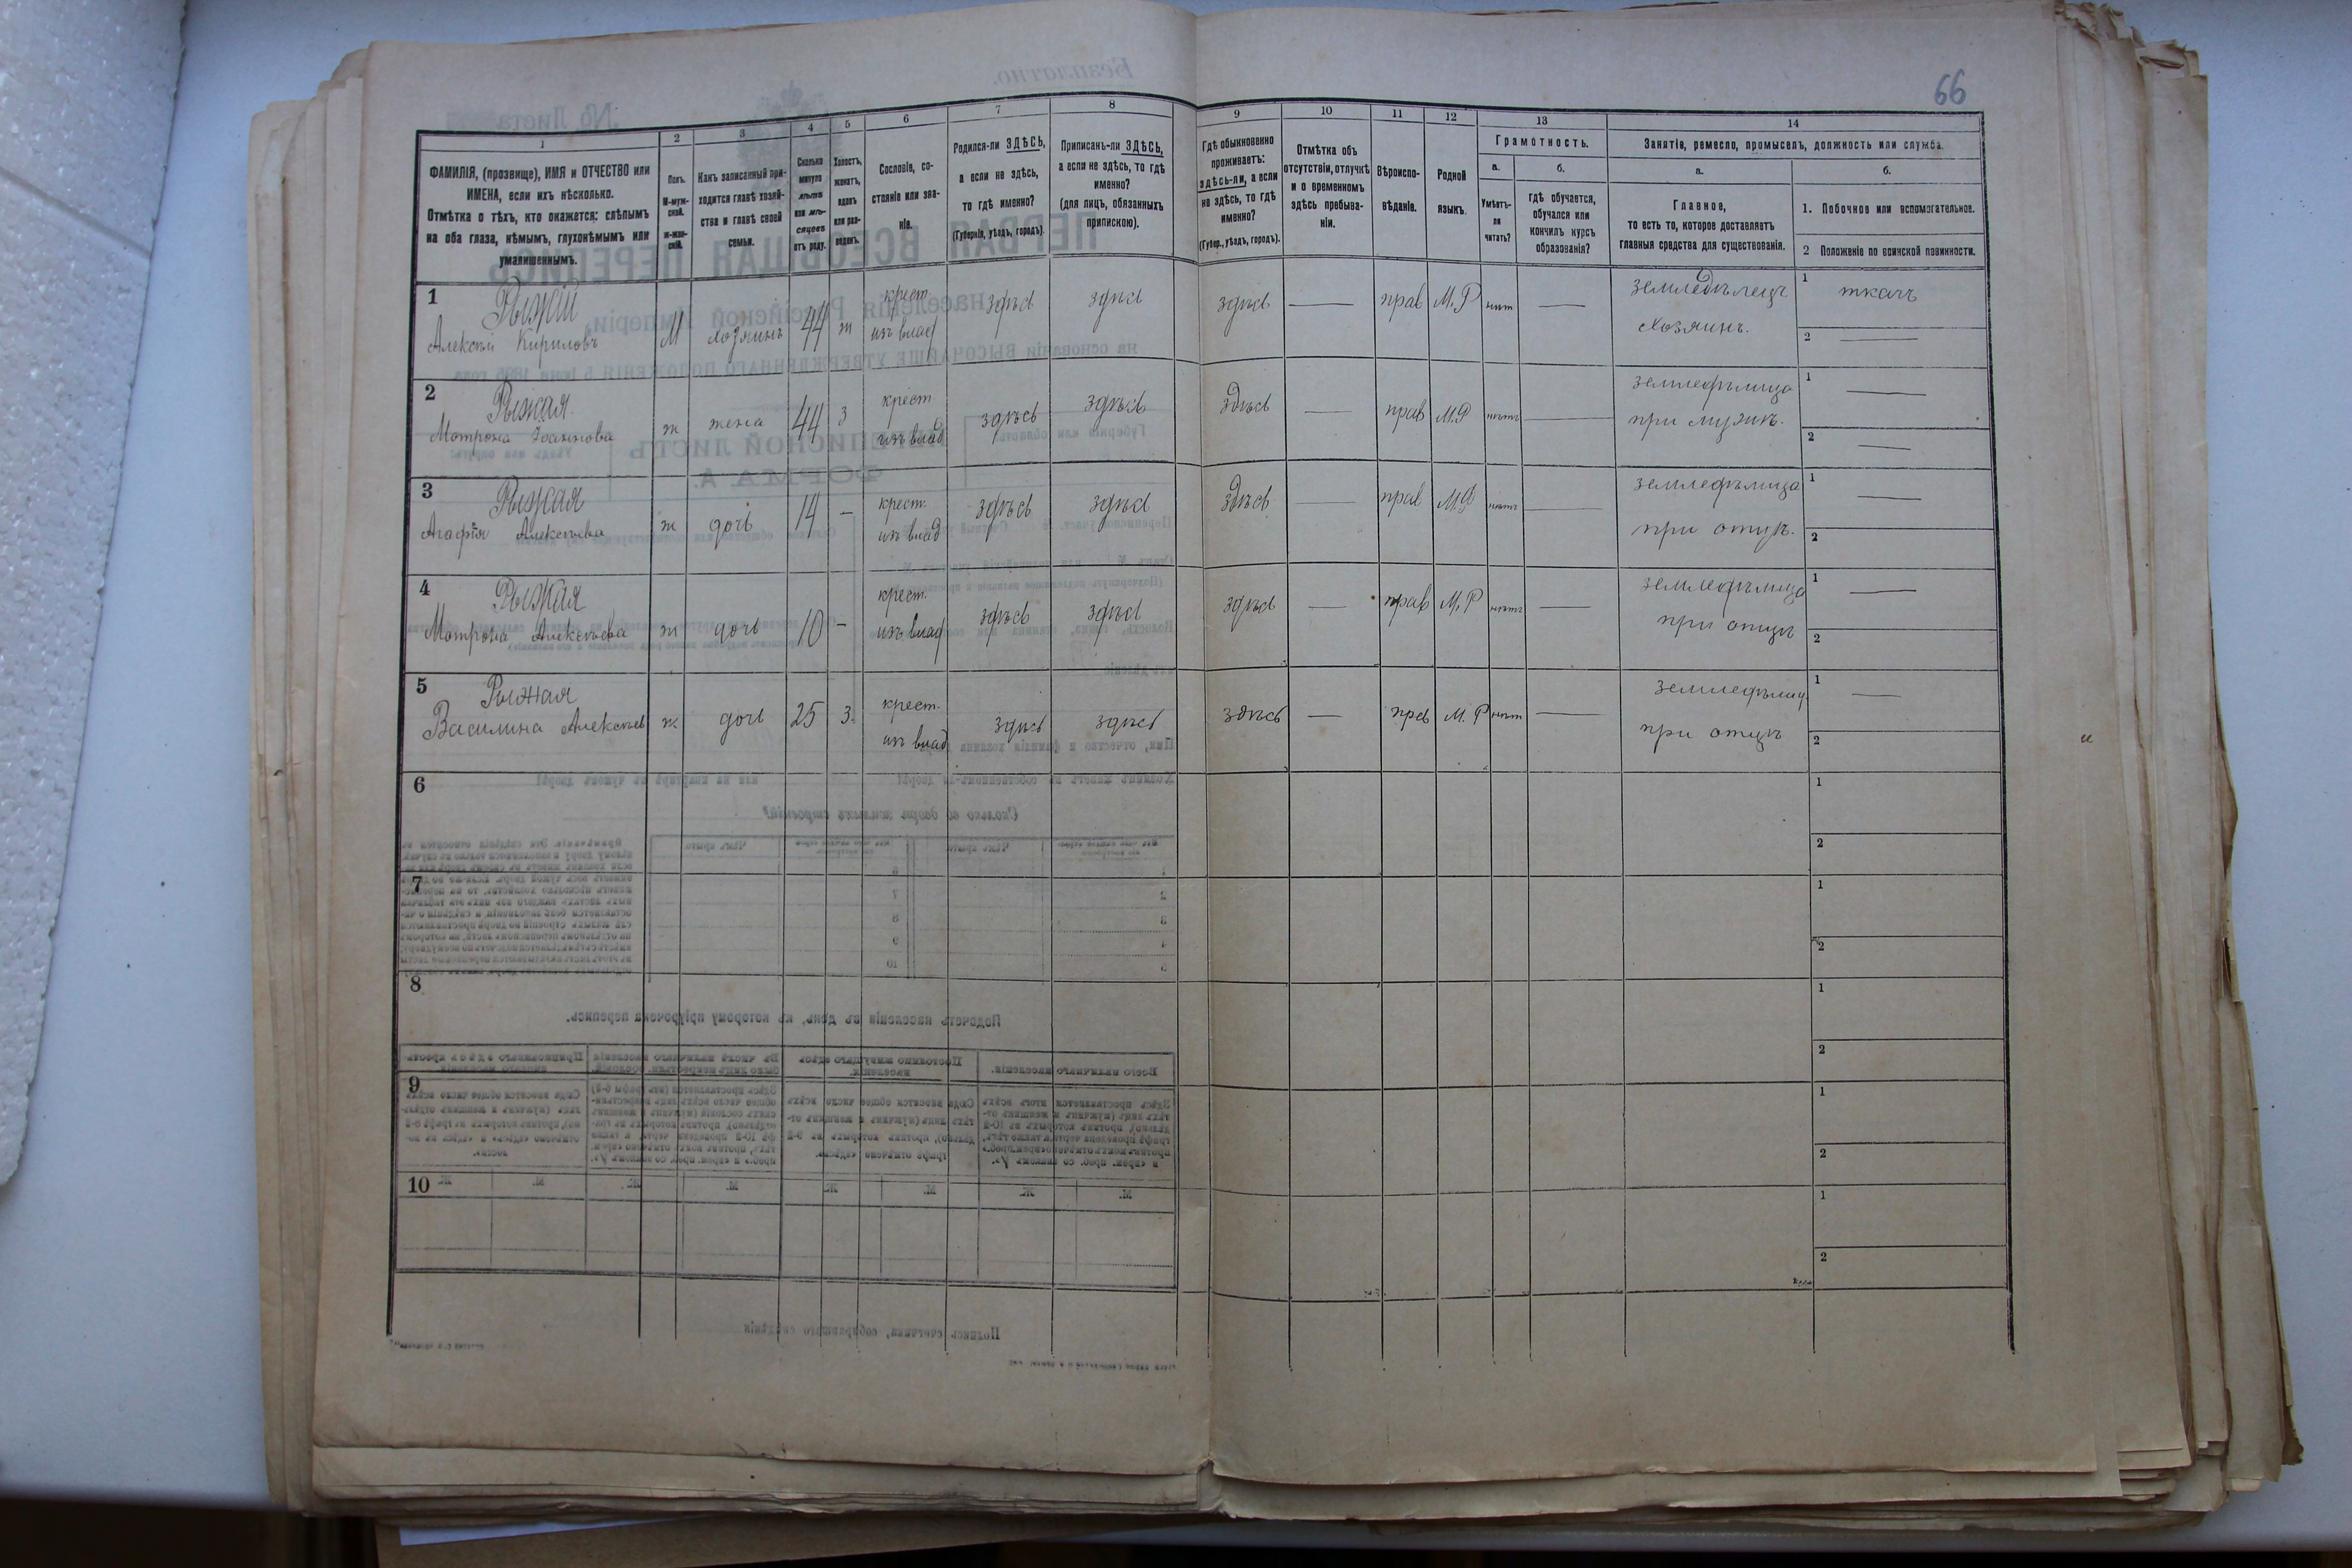 66
1
2
3
4
5
6
7
8
9
10
11
12
13
14
ФАМИЛІЯ, (прозвище), ИМЯ и ОТЧЕСТВО или
ИМЕНА, если ихъ нѣсколько.
Отмѣтка о тѣхъ, кто окажется: слѣпымъ
на оба глаза, нѣмымъ, глухонѣмымъ или
умалишеннымъ.
Полъ.
М-муж-
ской.
ж-жен-
скій.
Какъ записанный при-
ходится главѣ хозяй-
ства и главѣ своей
семьи.
Сколько
минуло
лѣтъ
или мѣ-
сяцевъ
отъ роду.
Холостъ,
женатъ,
вдовъ
или раз-
веденъ.
Сословіе, со-
стояніе или зва-
ніе.
Родился-ли ЗДѢСЬ,
а если не здѣсь,
то гдѣ именно?
(Губернія, уѣздъ, городъ).
Приписанъ-ли ЗДѢСЬ,
а если не здѣсь, то гдѣ
именно?
(для лицъ, обязанныхъ
припискою).
Гдѣ обыкновенно
проживаетъ:
здѣсь-ли, а если
не здѣсь, то гдѣ
именно?
(Губер., уѣздъ, городъ).
Отмѣтка объ
отсутствіи, отлучкѣ
и о временномъ
здѣсь пребыва-
ніи.
Вѣроиспо-
вѣданіе.
Родной
языкъ.
Грамотность.
а.
б.
Умѣетъ-
ли
читать?
гдѣ обучается,
обучался или
кончилъ курсъ
образованія?
Занятіе, ремесло, промыселъ, должность или служба.
а.
б.
Главное,
то есть то, которое доставляетъ
главныя средства для существованія.
1. Побочное или вспомогательное.
2 Положеніе по воинской повинности.
1
Рыжій
Алексѣй Кириловъ
М
хозяинъ
44
ж
крест.
изъ влад
здѣсь
здѣсь
здѣсь
—
прав
М. Р
нѣт
—
земледѣлецъ
хозяинъ.
1 ткачъ
2 —
2
Рыжая.
Матрона Іоаннова
ж
жена
44
з
крест
изъ влад
здѣсь
здѣсь
здѣсь
—
прав
М.Р
нѣтъ
—
земледѣлица
при мужѣ.
1 —
2 —
3
Рыжая
Агафія Алексѣева
ж
дочь
14
—
крест.
изъ влад
здѣсь
здѣсь
здѣсь
—
прав
М.Р
нѣтъ
—
земледѣлица
при отцѣ.
1 —
2
4
Рыжая
Матрона Алексѣева
ж
дочь
10
-
крест.
изъ влад
здѣсь
здѣсь
здѣсь
—
прав
М. Р
нѣтъ
—
земледѣлица
при отцѣ
1 —
2
5
Рыжая
Василина Алексѣев
ж
дочь
25
з.
крест.
изъ влад
здѣсь
здѣсь
здѣсь
—
прав
М. Р
нѣт
—
земледѣлиц
при отцѣ
1 —
2
6
1
2
7
1
2
8
1
2
9
1
2
10
1
2